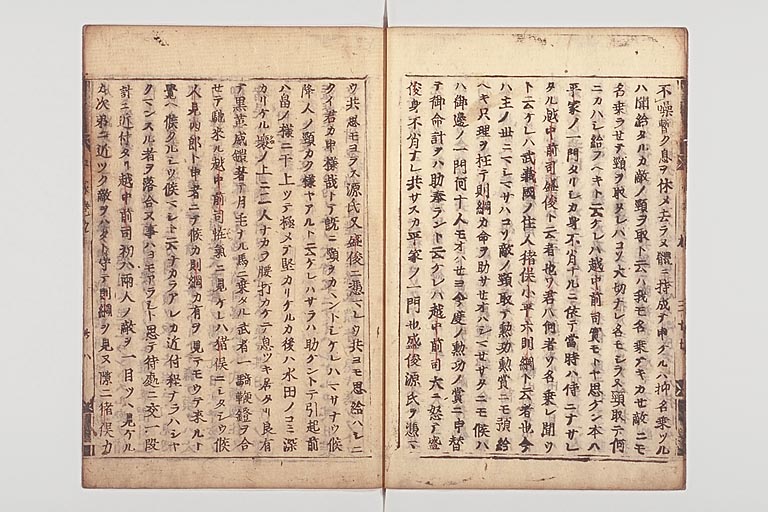 不噪暫ク息ヲ休メ去ラヌ體ニ持成テ申ケルハ抑名乗ツル
ハ聞給タルカ敵ノ頸ヲ取ト云ハ我モ名乗テキカセ敵ニモ
名乗ラセテ頸ヲ取タレハコソ大切ナレ名モシラヌ頸取テ何
ニカハシ給フヘキト云ケレハ越中前司實モトヤ思ケン本ハ
平家ノ一門タリシカ身不肖ナルニ依テ當時ハ侍ニナサレ
タル越中前司盛俊ト云者也ワ君ハ何者ソ名乗レ聞ウ
ト云ケレハ武蔵國ノ住人猪俣小平六則綱ト云者也今
ハ主ノ世ニマシマサハコソ敵ノ頸取テ勲功勲賞ニモ預給
ヘキ只理ヲ枉テ則綱カ命ヲ助サセオハシマセサタニモ候ハ
ハ御邊ノ一門何十人モオハセヨ今度ノ勲功ノ賞ニ申替
テ御命計ヲハ助奉ラント云ケレハ越中前司大ニ怒テ盛
俊身不肖ナレ共サスカ平家ノ一門也盛俊源氏ヲ憑マ
ウ共思モヨラス源氏又盛俊ニ憑マレウ共ヨモ思給ハシニ
クイ君カ申様哉トテ既ニ頸ヲカヽントシケレハマサナウ候
降人ノ頸カク様ヤアルト云ケレハサラハ助ケントテ引起前
ハ畠ノ様ニ干上ツテ極メテ堅カリケルカ後ハ水田ノコミ深
カリケル畷ノ上ニ二人ナカラ腰打カケテ息ツキ居タリ良有
テ黒革威鎧着テ月毛ナル馬ニ乗タル武者一騎鞭鐙ヲ合
セテ馳来ル越中前司怪氣ニ見ケレハ猪俣クルシウ候
人見四郎ト申者ニテ候カ則綱カ有ヲ見テモウテ来ルト
覺ヘ候クルシウ候マシト云ナカラアレカ近付程ナラハシヤ
クマンスル者ヲ落合又事ハヨモアラシト思テ待處ニ交一段
計ニ近付タリ越中前司初ハ両人ノ敵ヲ一目ツヽ見ケル
カ次第ニ近ツク敵ヲハタト守テ則綱ヲ見ヌ隙ニ猪俣カ